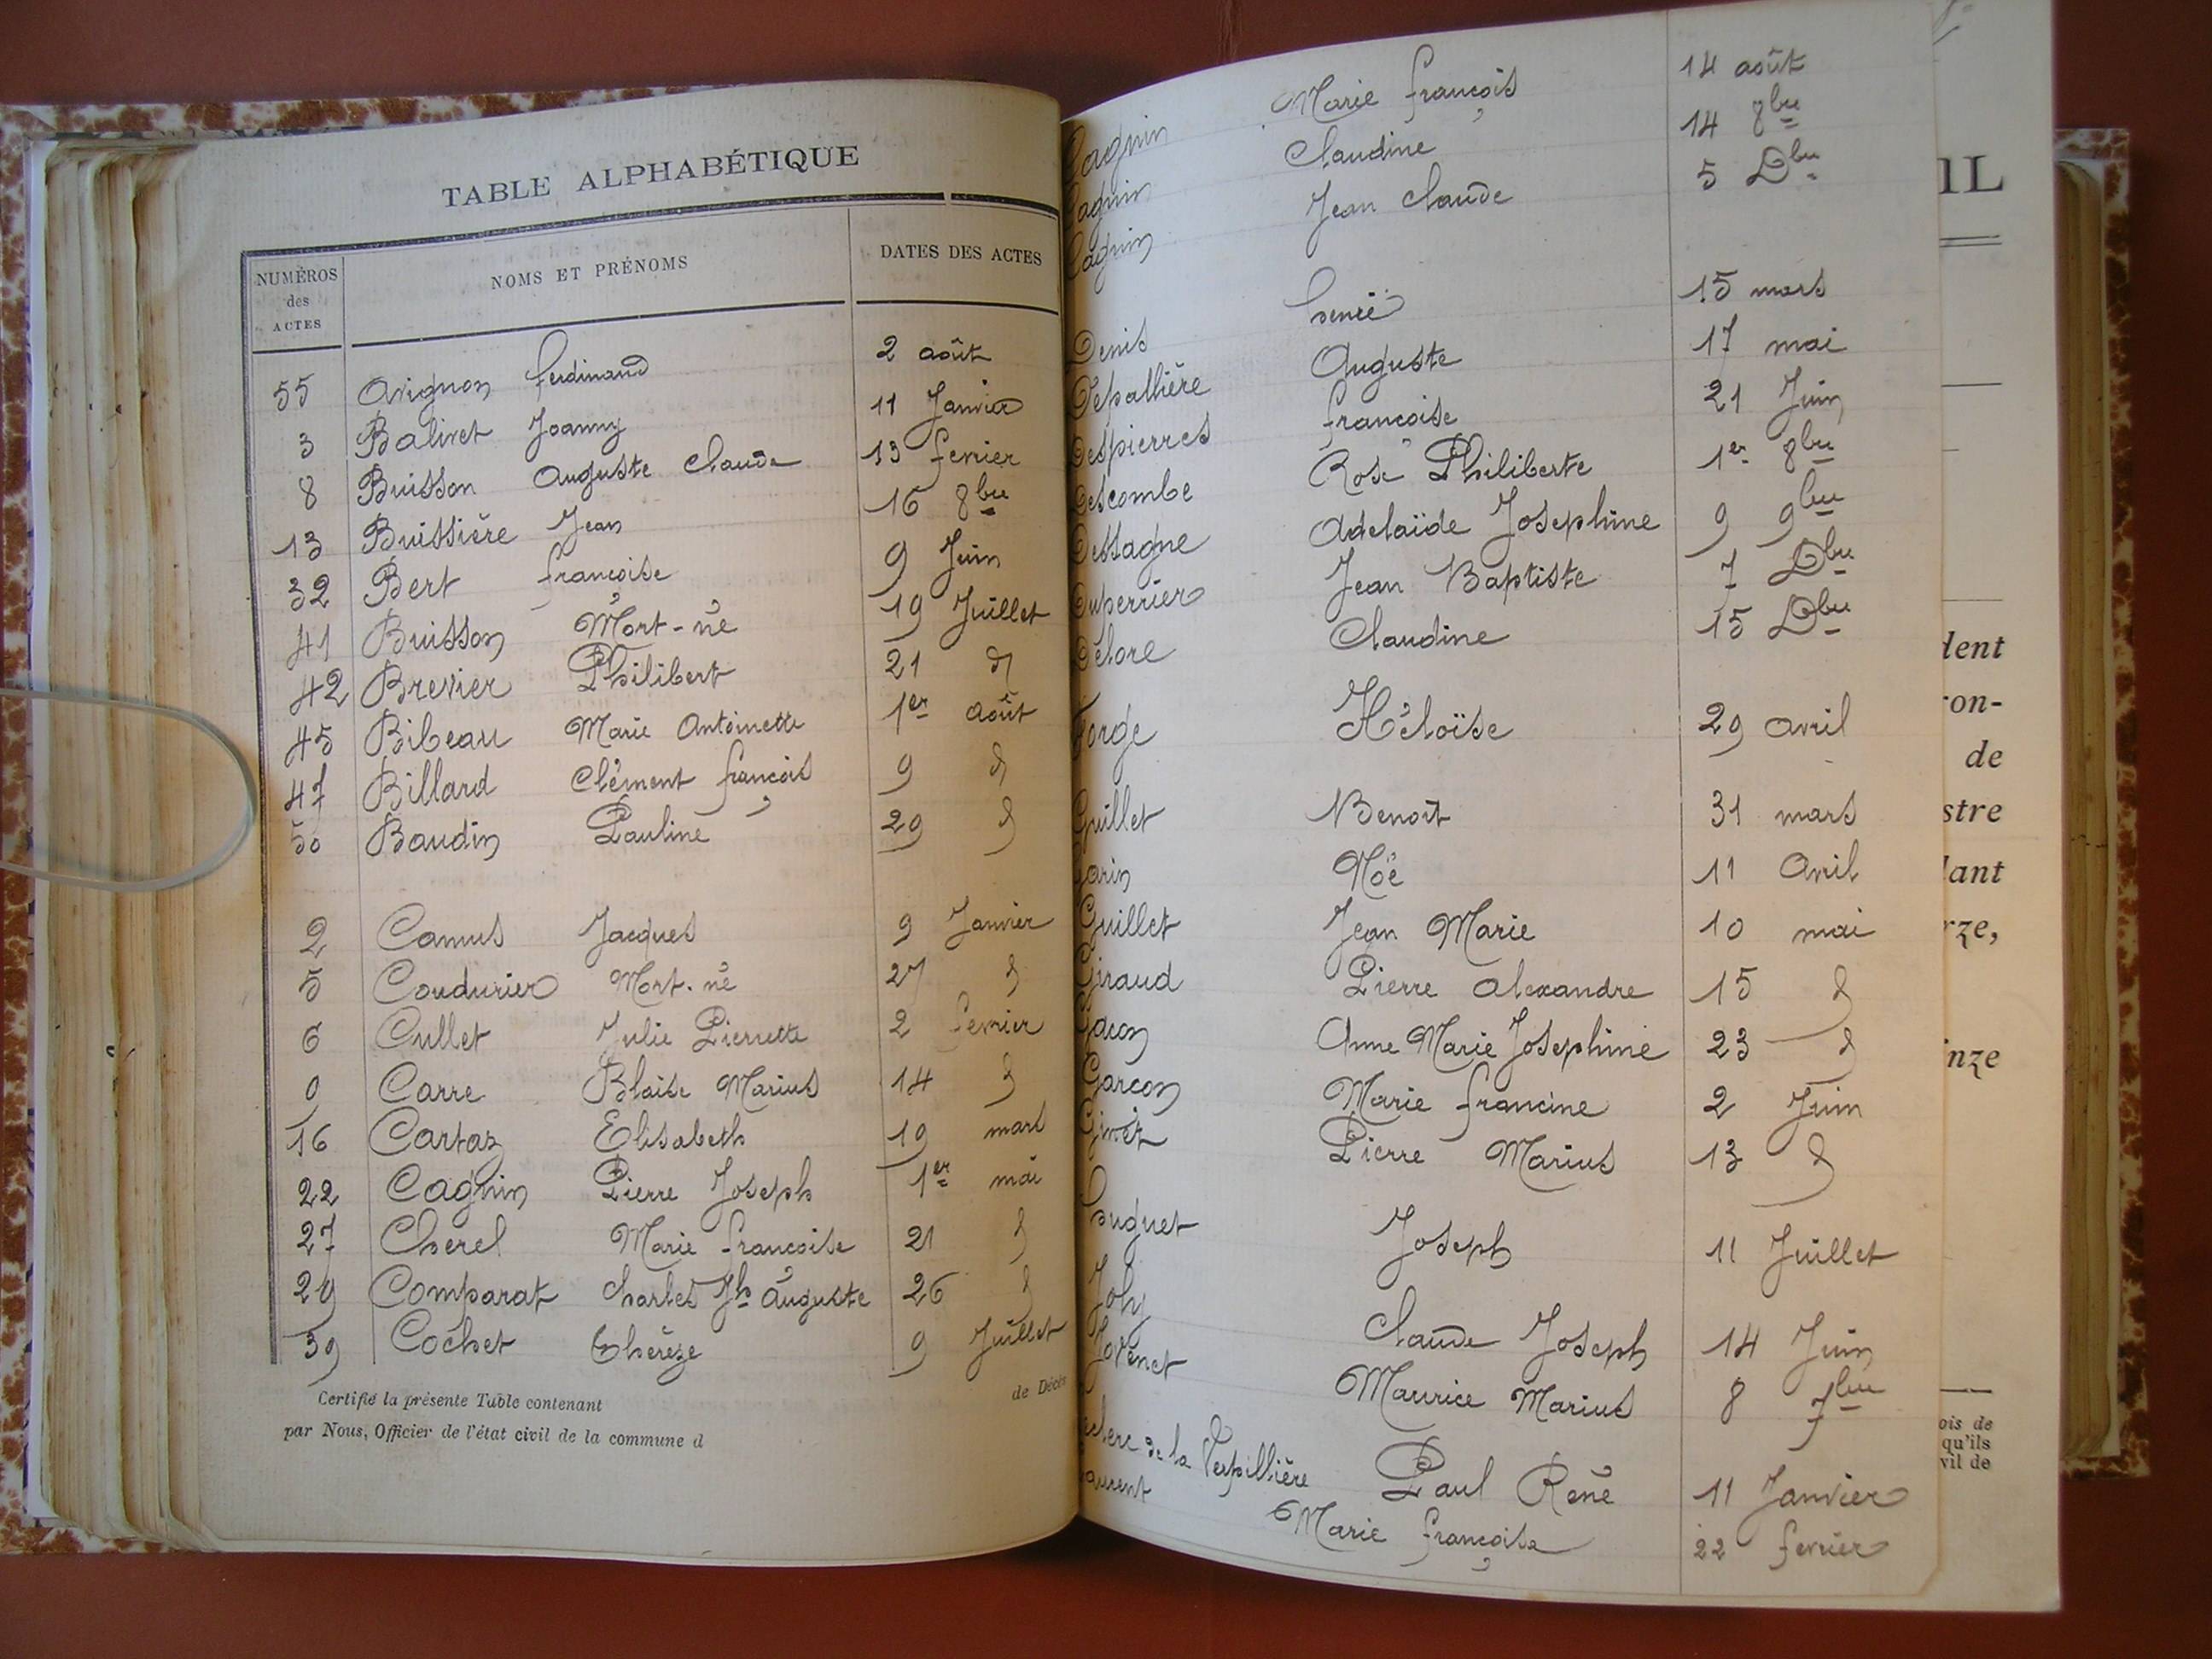 TABLE ALPHABÉTIQUE
NUMÉROS des ACTES NOMS ET PRÉNOMS DATES DES ACTES
55 Avignon ferdinand 2 août
3 Balivet Joanny 11 Janvier
8 Buisson Auguste Claude 13 fevrier
13 Buissière Jean 16 8bre
32 Bert françoise 9 Juin
41 Buisson Mort-né 19 Juillet
42 Brevier Philibert 21 d
45 Bibeau Marie Antoinette 1er août
47 Billard Clément françois 9 d
50 Baudin Pauline 29 d
2 Camus Jacques 9 Janvier
5 Coudurier Mort-né 27 d
6 Cullet Julie Pierrette 2 fevrier
9 Carre Blaise Marius 14 d
16 Cartaz Elisabeth 19 mars
22 Cagnin Pierre Joseph 1er mai
27 Cherel Marie françoise 21 d
29 Comparat Charles Jh Auguste 26 d
39 Cochet Thérèze 9 Juillet
Certifié la présente Table contenant de Décès
par Nous, Officier de l'état civil de la commune d
Cagnin Marie françois 14 août
Cagnin Claudine 14 8bre
Cagnin Jean Claude 5 Dbre
Denis henri 15 mars
Depallière Auguste 17 mai
Despierres françoise 21 Juin
Descombe Rose Philiberte 1er 8bre
Dessagne Adelaïde Josephine 9 9bre
Duperrier Jean Baptiste 7 Dbre
Delore Claudine 15 Dbre
Forge Héloïse 29 avril
Guillet Benoît 31 mars
Garin Noé 11 Avril
Guillet Jean Marie 10 mai
Giraud Pierre Alexandre 15 d
Gacon Anne Marie Josephine 23 d
Garçon Marie francine 2 Juin
Givét Pierre Marius 13 d
huguet Joseph 11 Juillet
Joly Claude Joseph 14 Juin
Jovenet Maurice Marius 8 7bre
eclerc de la Verpillière Paul René 11 Janvier
aurent Marie françoise 22 fevrier
IL
dent
ron-
de
stre
dant
rze,
inze
ois de
qu'ils
vil de